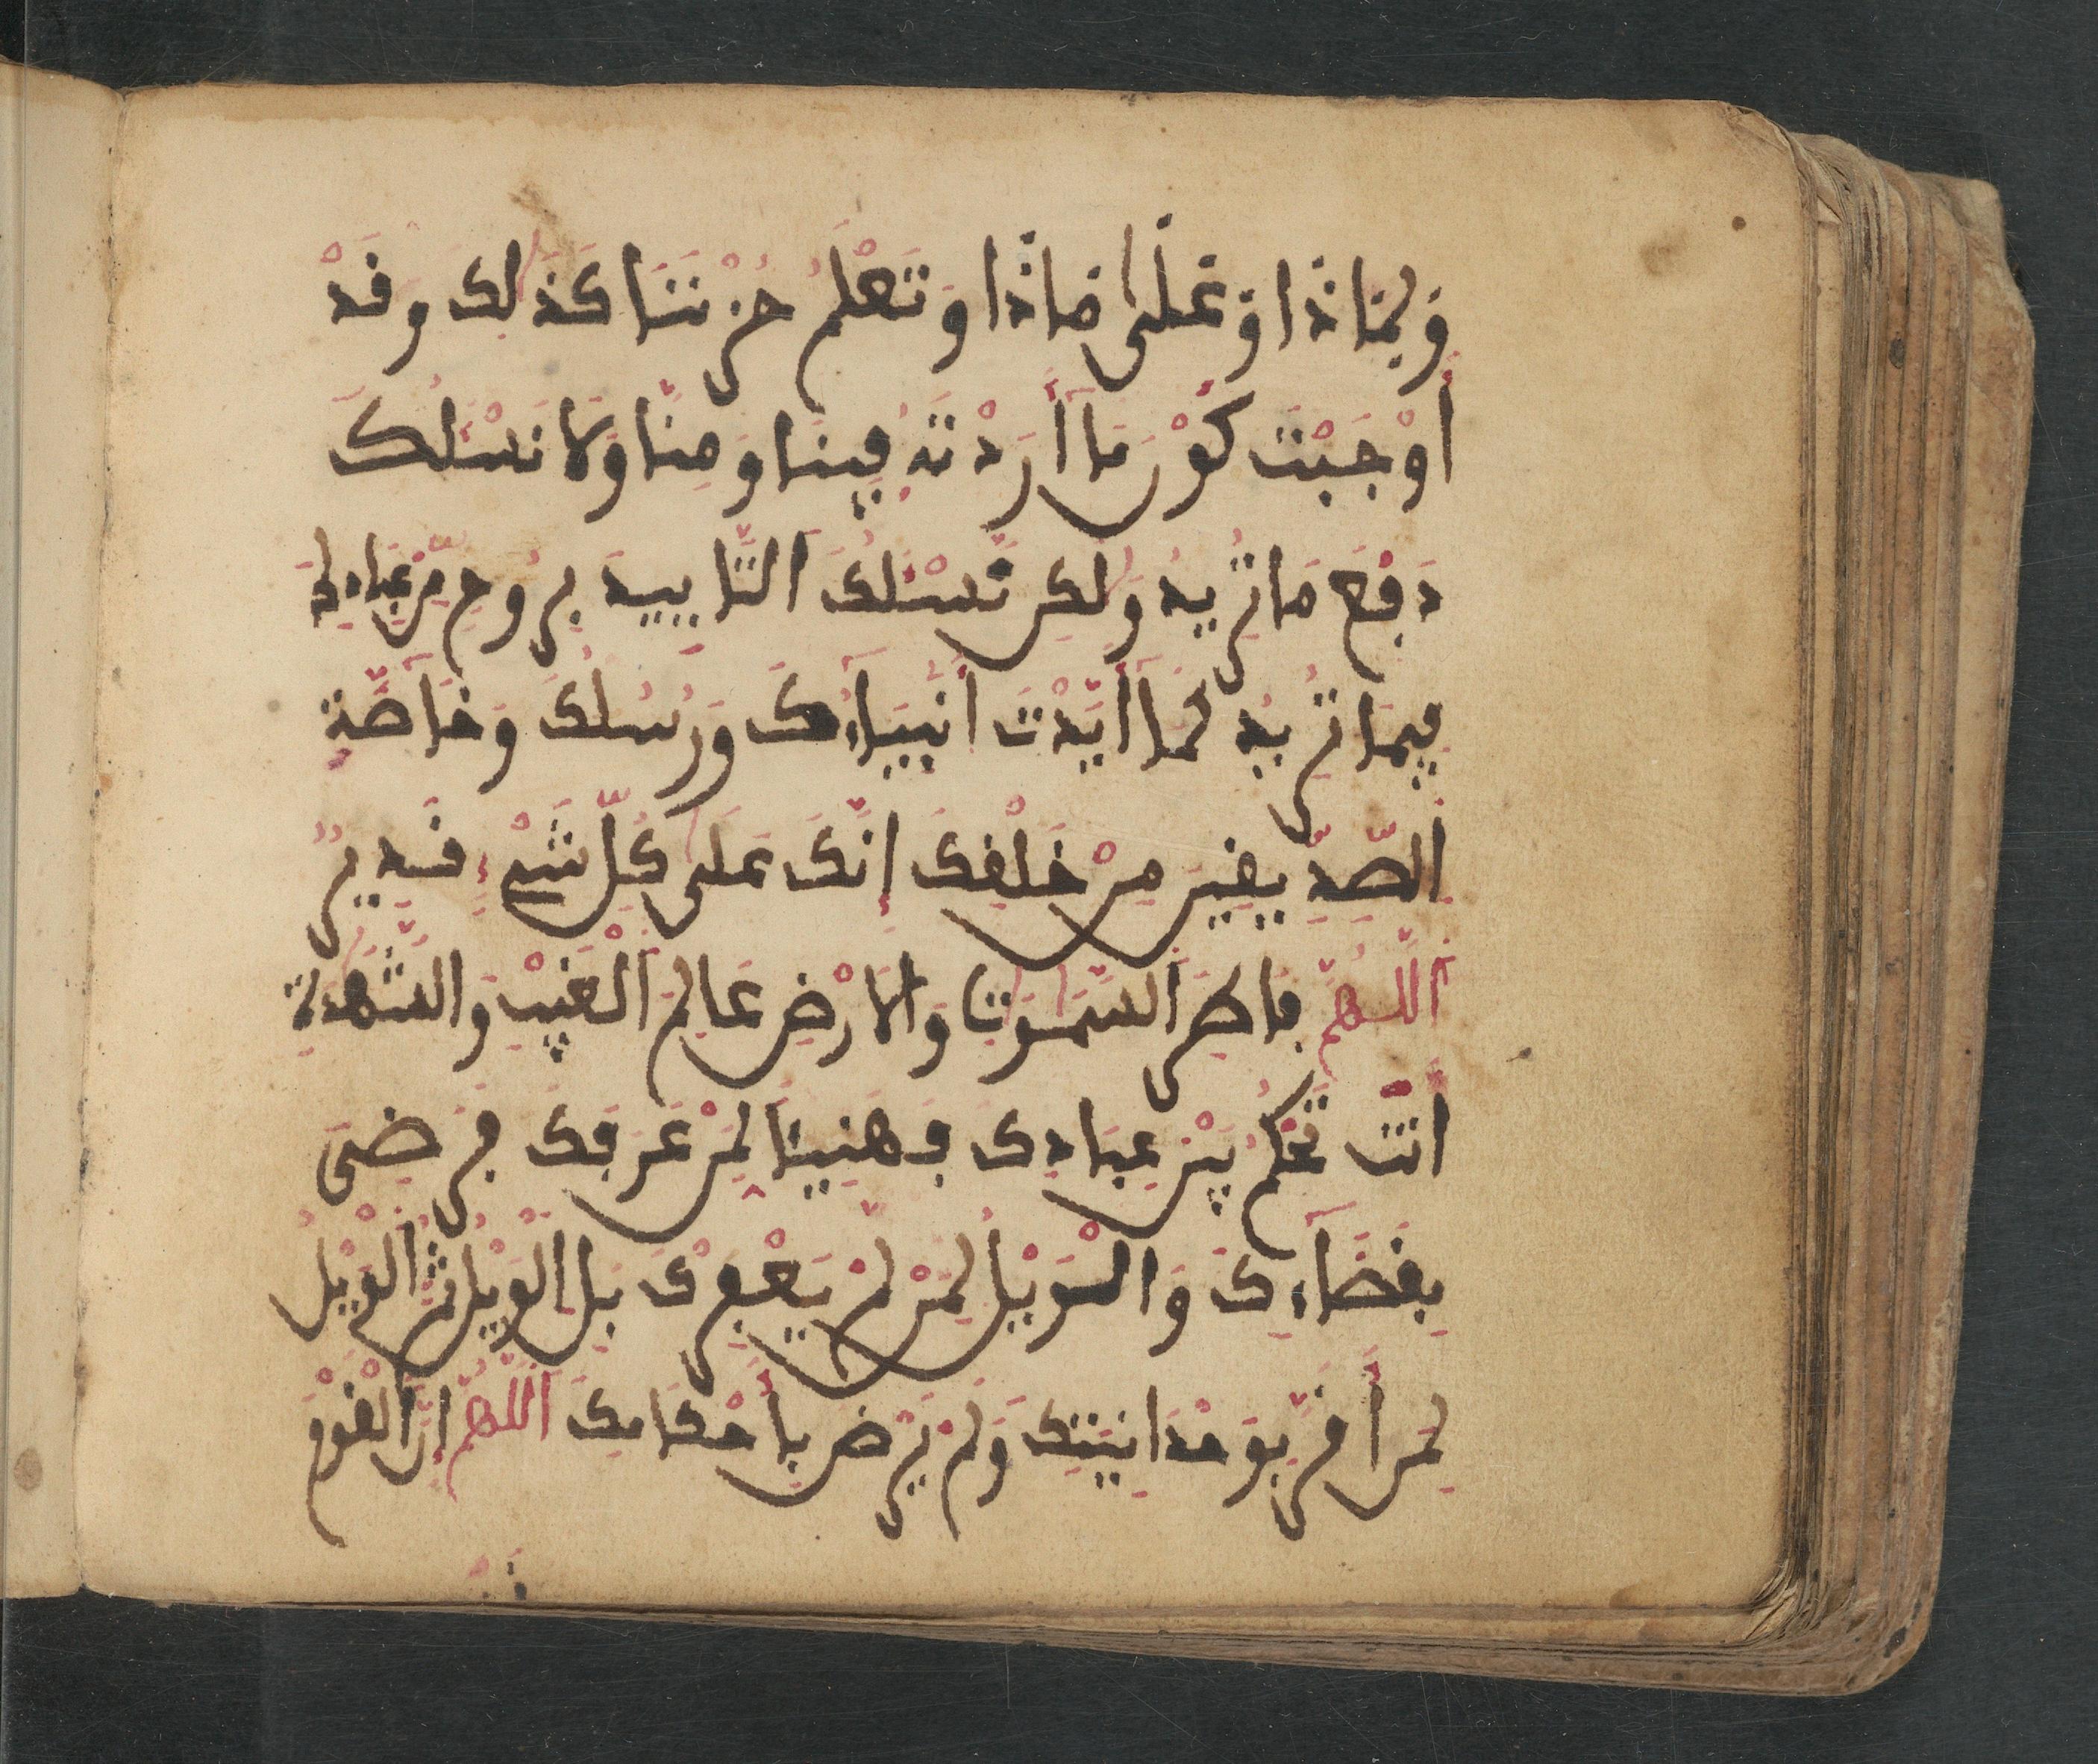 وَبِمَاذَا وَعَلَى مَاذَا وَتَعْلَمُ حُزْنَنَا كَذَلِكَ وَقَدْ
أَوْجَبْتَ كَوْنَ مَا أَرَدْتَهُ فِينَا وَمِنَّا وَلَا نَسْئَلُكَ
دَفْعَ مَا تُرِيدُ وَلَكِن نَسْئَلُكَ التَّايِيدَ بِرُوحٍ مِّنْ عِندِكَ
فِيمَا تُرِيدُ كَمَا أَيَّدْتَ أَنْبِيَاءَكَ وَرُسُلَكَ وَخَاصَّةَ
الصِّدِّيقِينَ مِنْ خَلْقِكَ إِنَّكَ عَلَى كُلِّ شَيْءٍ قَدِيرٌ
اَللَّهُمَّ فَاطِرَ السَّمَوَتِ وَالْأَرْضِ عَالِمَ الْغَيْبِ وَالشَّهَدَةِ
أَنتَ تَحْكُمُ بَيْنَ عِبَادِكَ فَهَنِيئًا لِمَنْ عَرَفَكَ فَرَضِيَ
بِقَضَاءِكَ وَالْوَيْلُ لِمَنْ لَّمْ يَعْرِفْكَ بَلِ الْوَيْلُ ثُمَّ الْوَيْلُ
لِمَنْ أَقَرَّ بِوَحْدَانِيَّتِكَ وَلَمْ يَرْضَ بِأَحْكَامِكَ اَللَّهُمَّ إِنَّ الْقَوْمَ